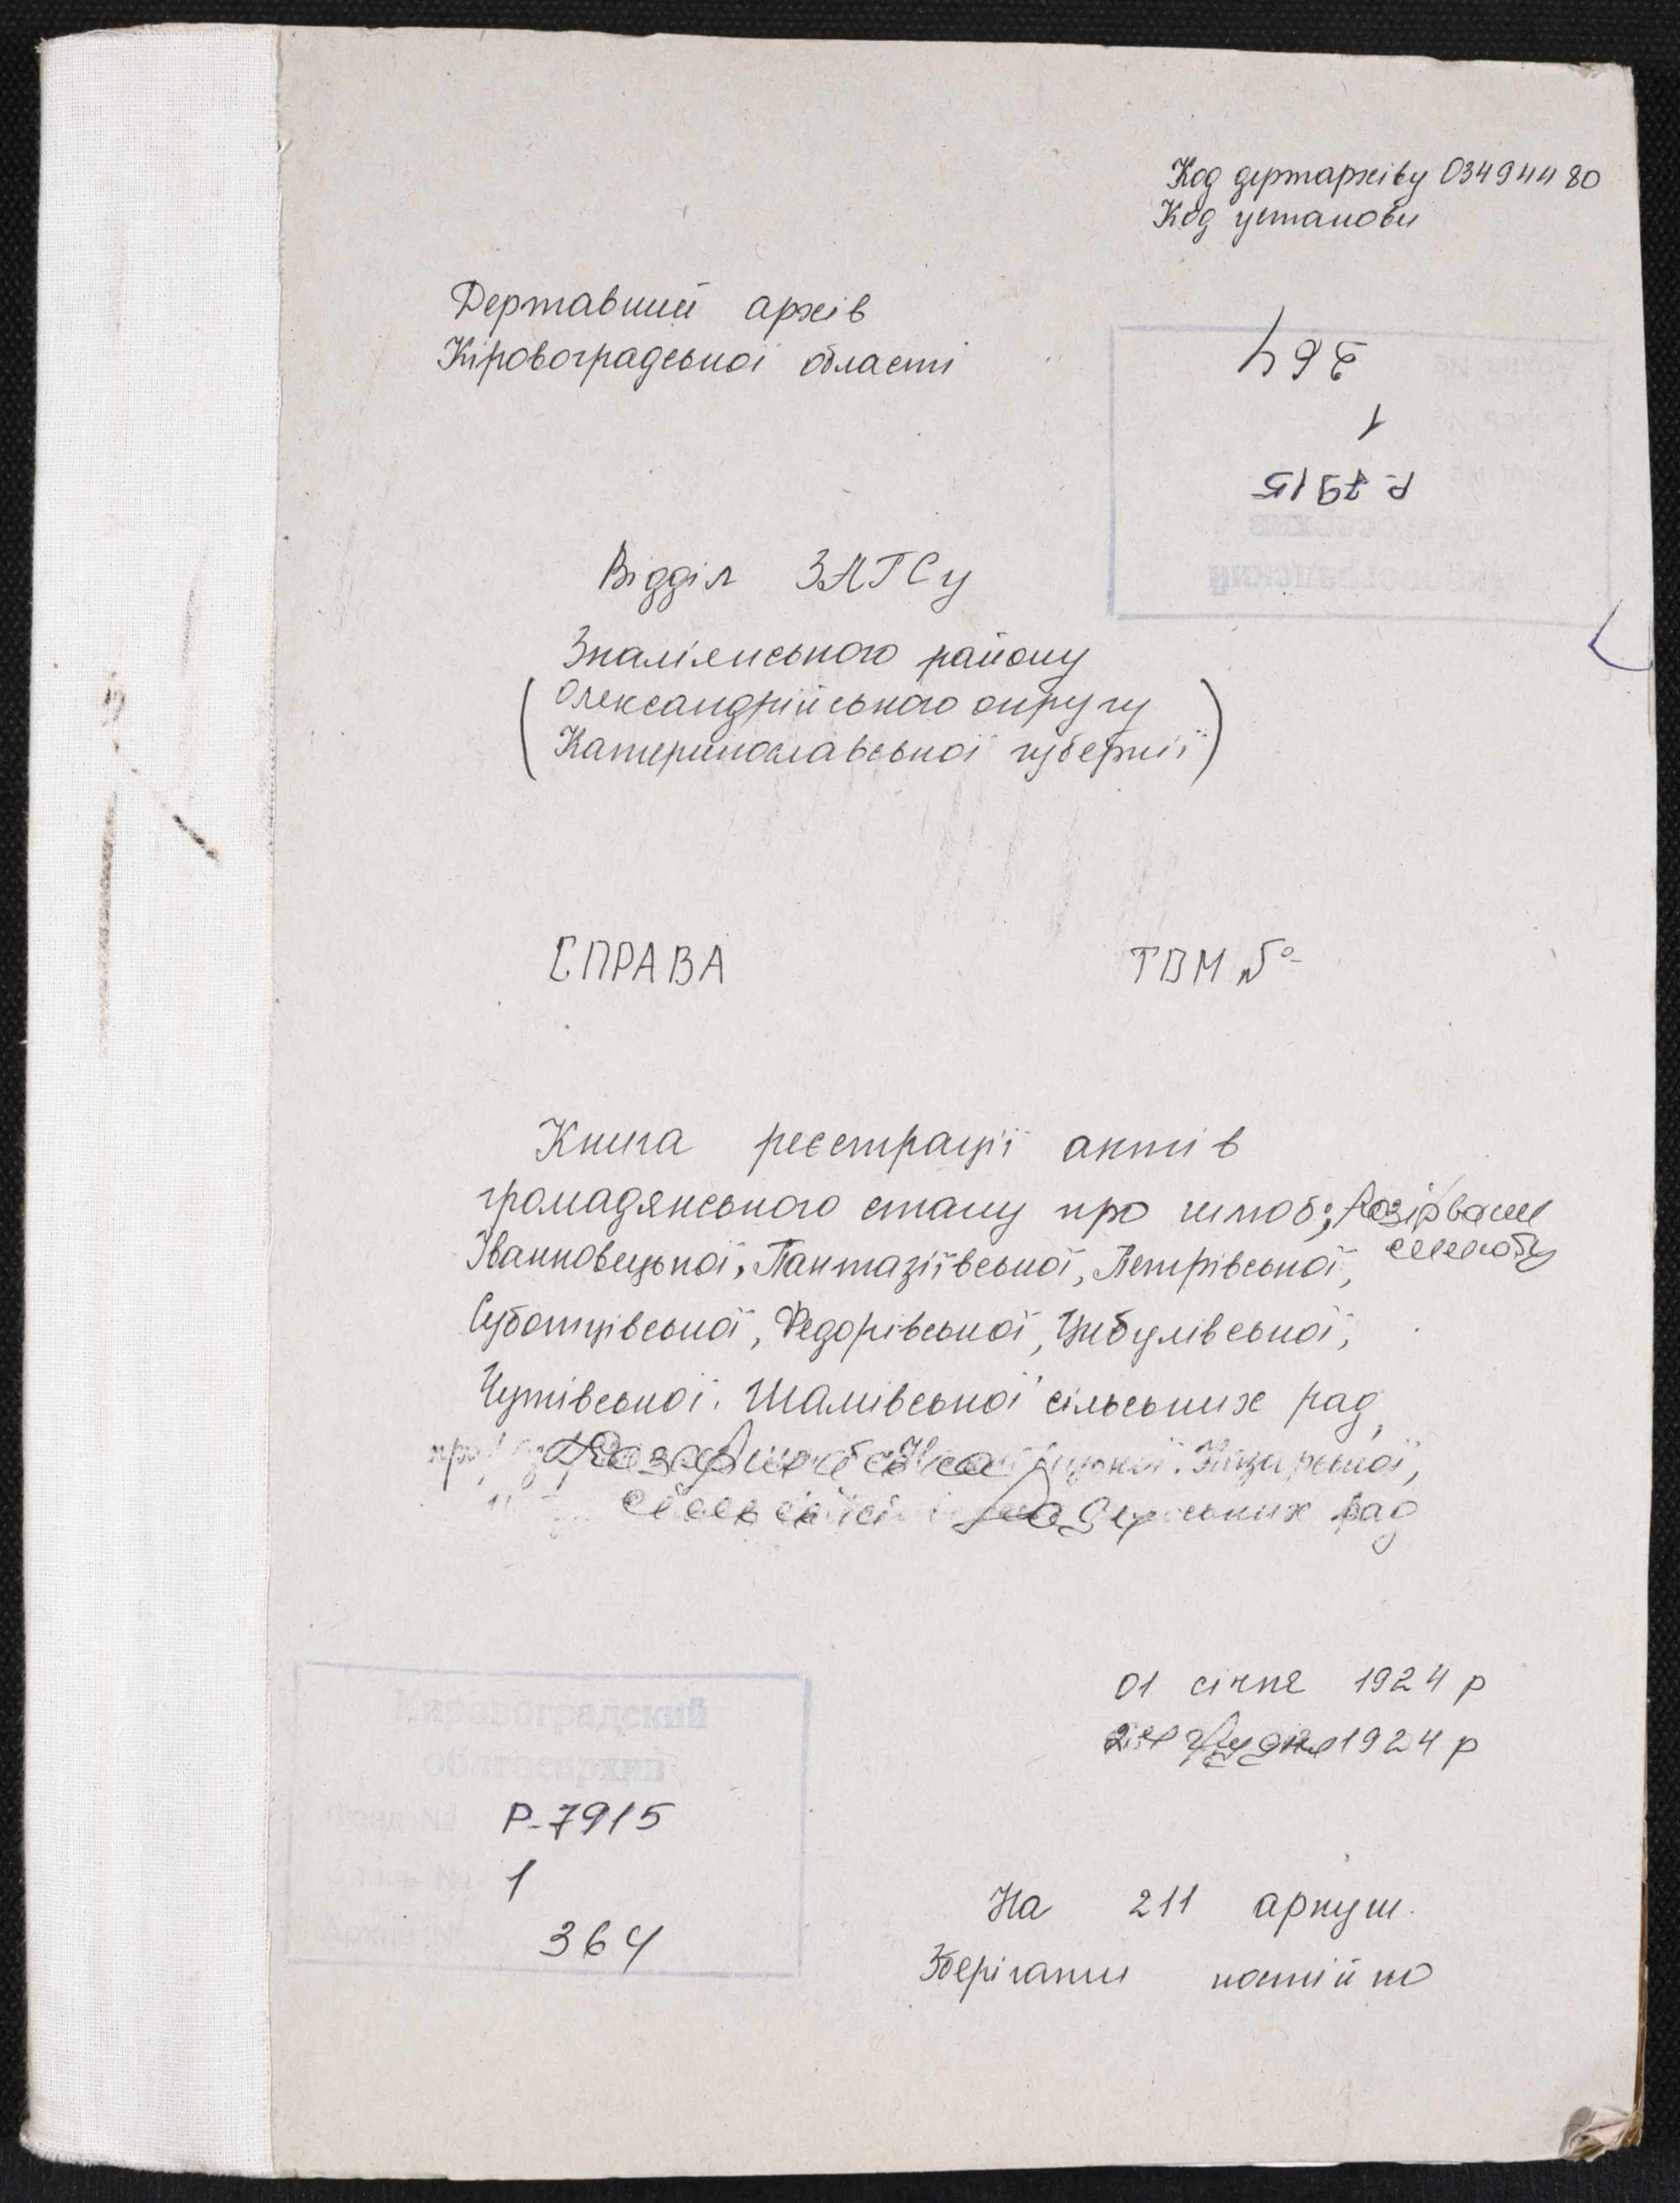 Код держархіву 03494480
Код установи
Державний архів
Кіровоградської області
364
1
Р-7915
Відділ ЗАГСу
Знам'янського району
(Олександрійського округу
Катеринославської губернії)
СПРАВА ТВМ №
Книга реєстрації актів
громадянського стану про шлюб; розірвання
шлюбу
Іванковецької, Пантазіївської, Петрівської,
Суботцівської, Федорівської, Цибулівської,
Чутівської, Шамівської сільських рад,
сільських рад
01 січня 1924 р
грудня 1924 р
Кировоградский
облгосархив
Фонд № Р-7915
1
364
На 211 аркуш.
Зберігати постійно